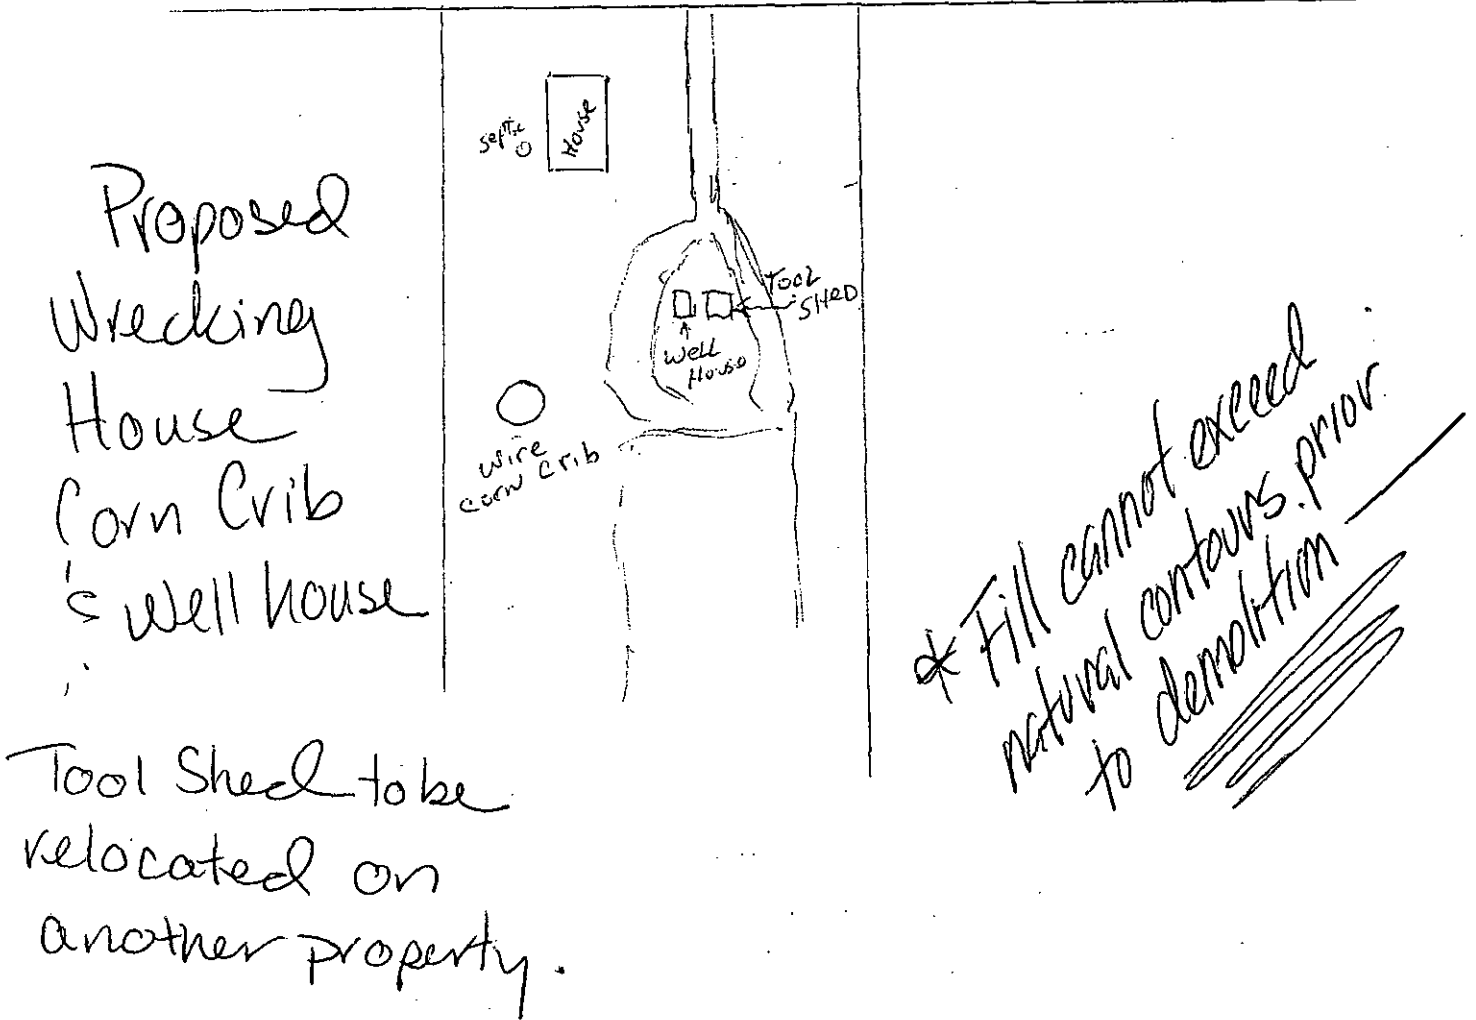 Proposed
Wrecking
House
Corn Crib
& Well house
Tool Shed to be
relocated on
another property.
Septic
House
TOOL
SHED
Well
House
Wire
Corn Crib
* Fill cannot exceed
natural contours prior
to demolition